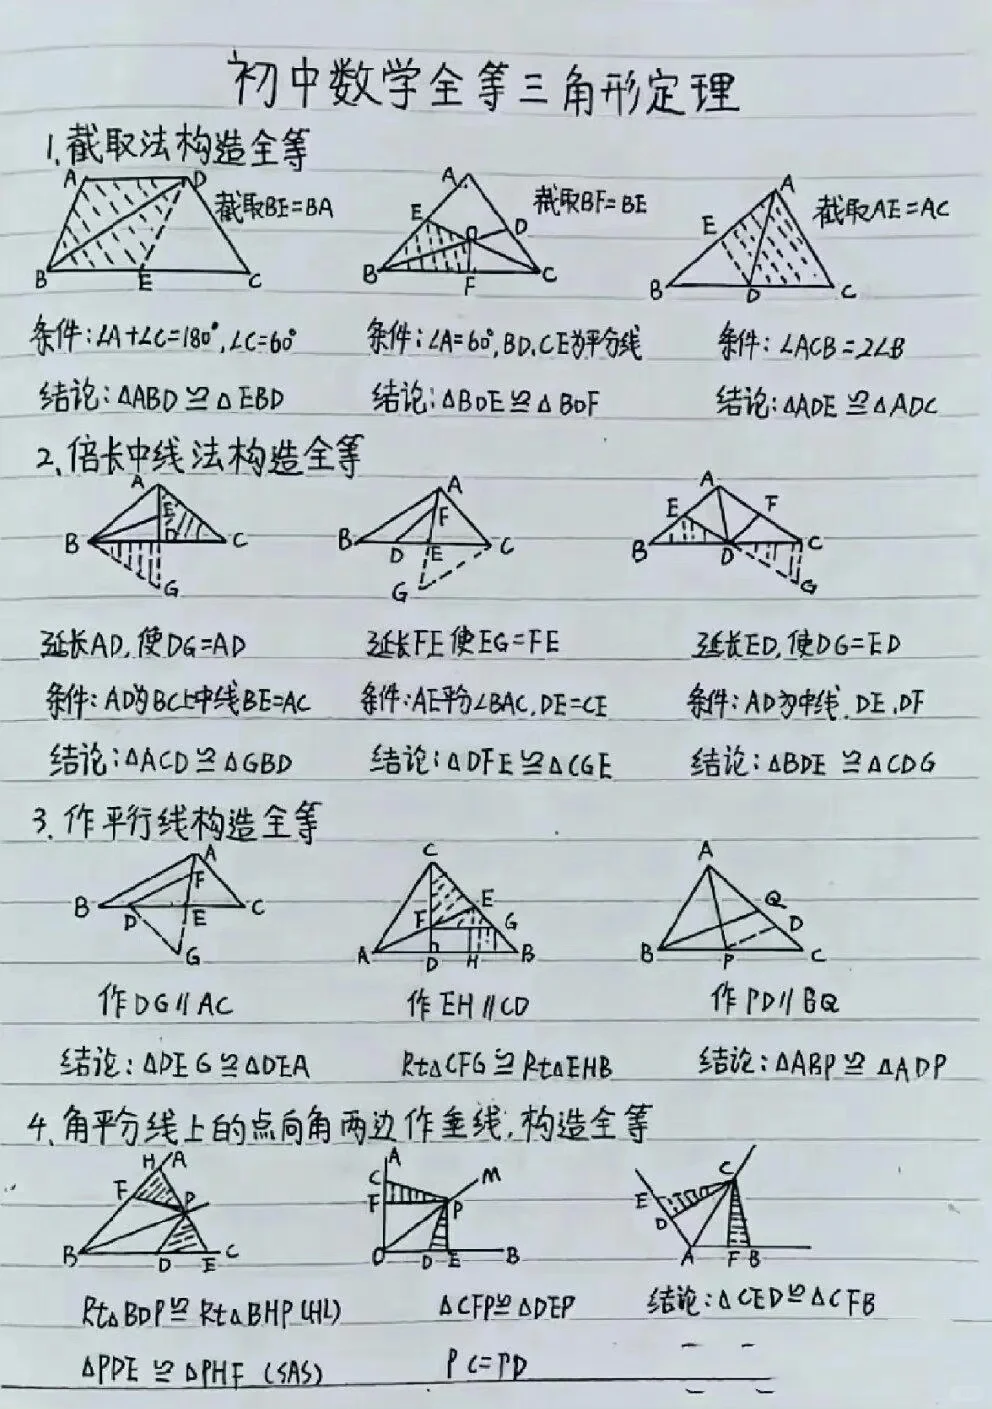 初中数学全等三角形定理
1.截取法构造全等
A D B E C 截取BE=BA
A E O D B F C 截取BF=BE
A E B D C 截取AE=AC
条件:∠A+∠C=180°,∠C=60° 条件:∠A=60°,BD.CE为平分线 条件:∠ACB=2∠B
结论:△ABD≌△EBD 结论:△BOE≌△BOF 结论:△ADE≌△ADC
2.倍长中线法构造全等
A E B D C G
A F B D E C G
A E F B D C G
延长AD,使DG=AD 延长FE使EG=FE 延长ED,使DG=ED
条件:AD为BC上中线BE=AC 条件:AE平分∠BAC.DE=CE 条件:AD为中线.DE.DF
结论:△ACD≌△GBD 结论:△DFE≌△CGE 结论:△BDE≌△CDG
3.作平行线构造全等
A F B D E C G
C E F G A D H B
A Q D B P C
作DG∥AC 作EH∥CD 作PD∥BQ
结论:△DEG≌△DEA Rt△CFG≌Rt△EHB 结论:△ABP≌△ADP
4.角平分线上的点向角两边作垂线,构造全等
H A F P B D E C
A C F M P O D E B
C E D A F B
Rt△BDP≌Rt△BHP(HL) △CFP≌△DEP 结论:△CED≌△CFB
△PDE≌△PHF(SAS) PC=PD